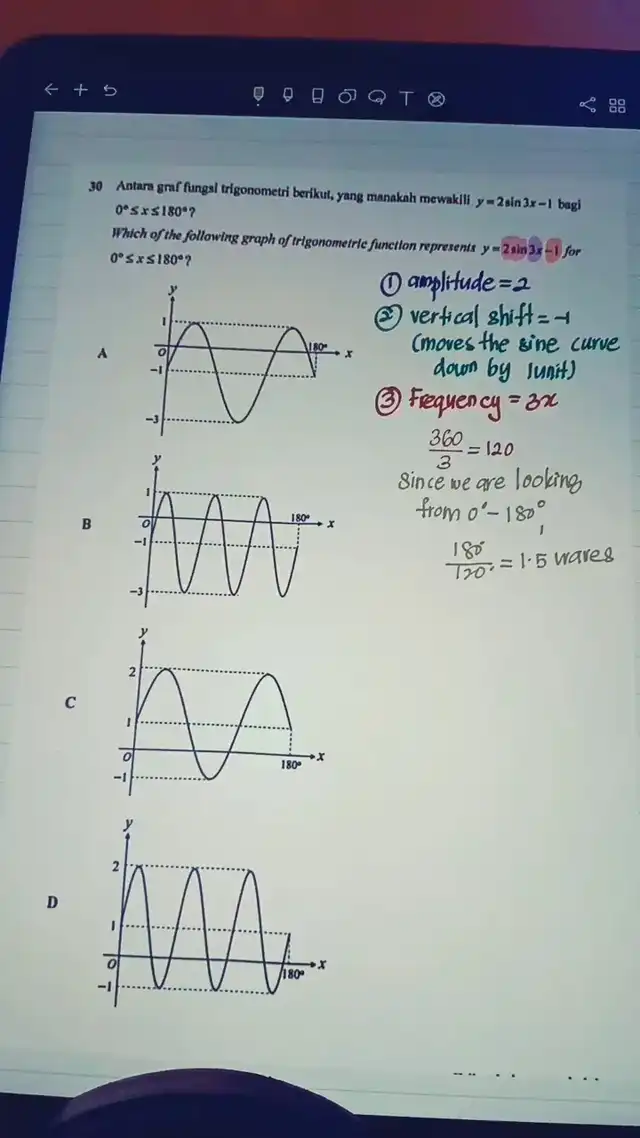 30 Antara graf fungsi trigonometri berikut, yang manakah mewakili y = 2 sin 3x – 1 bagi
0° ≤ x ≤ 180°?
Which of the following graph of trigonometric function represents y = 2 sin 3x – 1 for
0° ≤ x ≤ 180°?
① amplitude = 2
② vertical shift = -1
(moves the sine curve
down by 1unit)
③ Frequency = 3x
360/3 = 120
Since we are looking
from 0° - 180°,
180°/120° = 1.5 waves
A
y
1
O
180°
x
–1
–3
B
y
1
O
180°
x
–1
–3
C
y
2
1
O
180°
x
–1
D
y
2
1
O
180°
x
–1